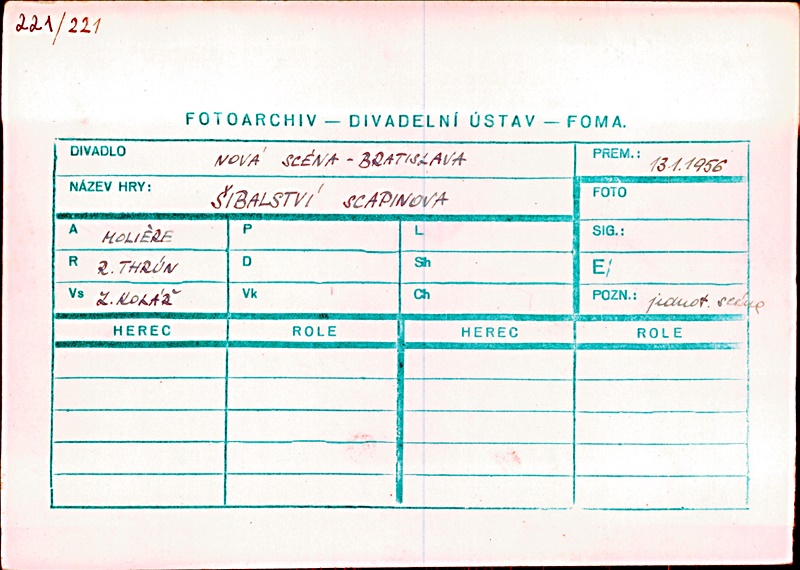 221/221
FOTOARCHIV — DIVADELNÍ ÚSTAV — FOMA.
DIVADLO NOVÁ SCÉNA - BRATISLAVA PREM.: 13.1.1956
NÁZEV HRY: ŠIBALSTVÍ SCAPINOVA FOTO
A MOLIÈRE P L SIG.:
R R. THRÚN D Sh E/
Vs Z. KOLÁŘ Vk Ch POZN.: jednot. scéna
HEREC ROLE HEREC ROLE